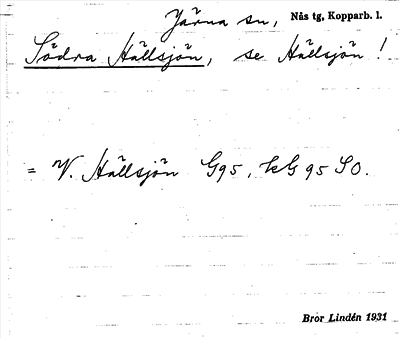 Järna sn, Nås tg, Kopparb. l.
Södra Hällsjön, se Hällsjön!
= V. Hällsjön G95, kG 95 SO.
Bror Lindén 1931